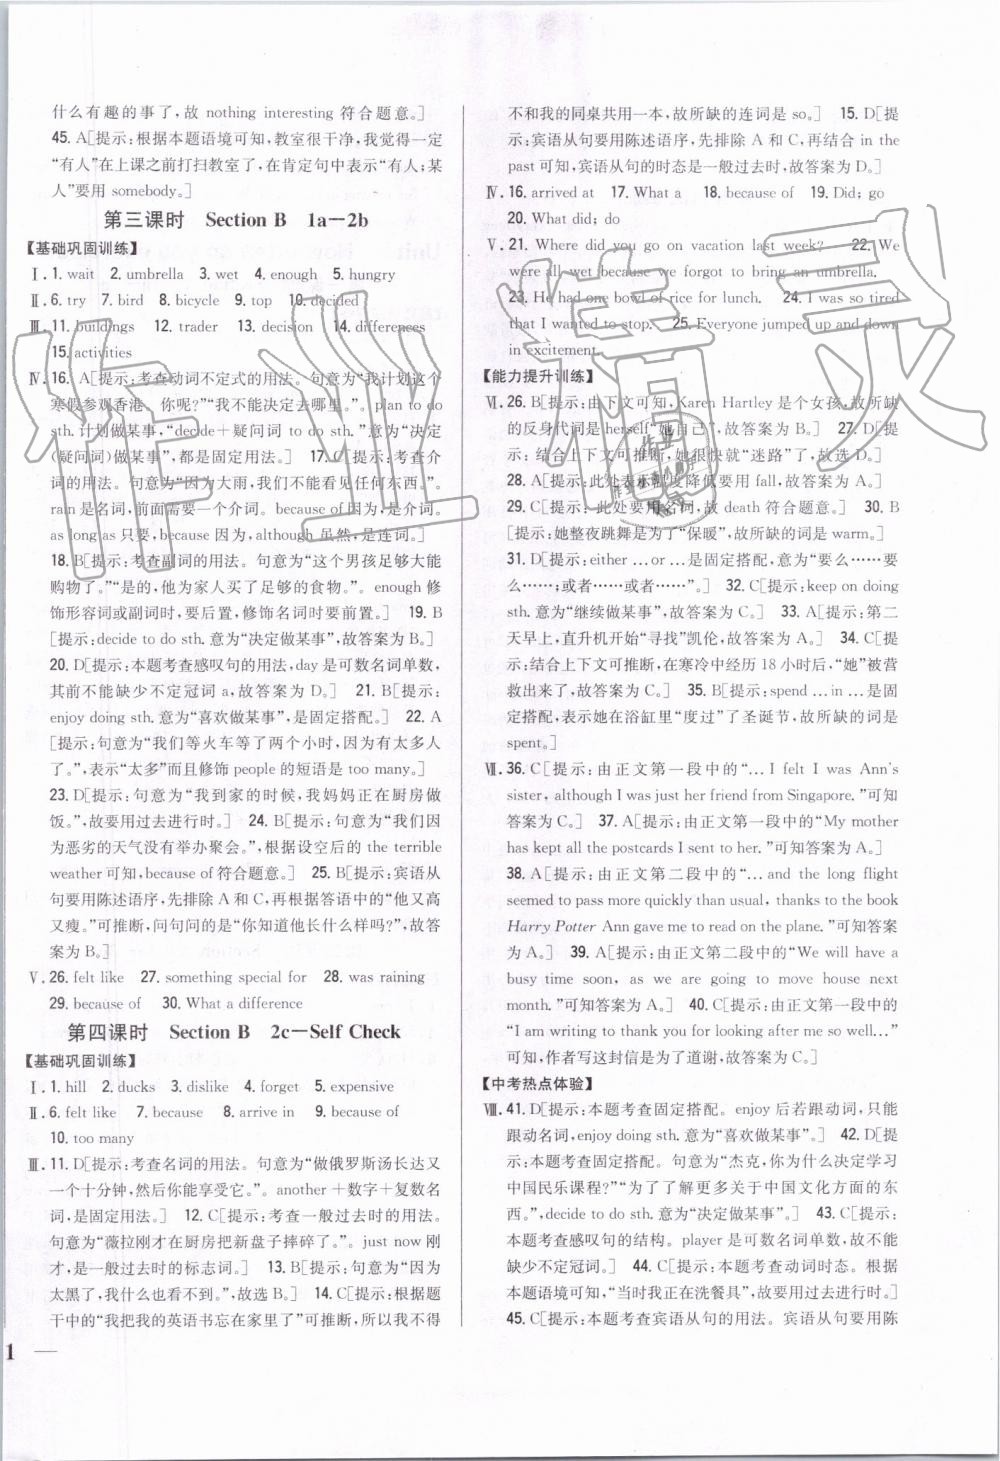 什么有趣的事了,故 nothing interesting 符合题意。]
45. A[提示:根据本题语境可知,教室很干净,我觉得一定
“有人”在上课之前打扫教室了,在肯定句中表示“有人;某
人”要用 somebody。]
第三课时 Section B 1a—2b
【基础巩固训练】
Ⅰ. 1. wait 2. umbrella 3. wet 4. enough 5. hungry
Ⅱ. 6. try 7. bird 8. bicycle 9. top 10. decided
Ⅲ. 11. buildings 12. trader 13. decision 14. differences
15. activities
Ⅳ. 16. A[提示:考查动词不定式的用法。句意为“我计划这个
寒假参观香港。你呢?”“我不能决定去哪里。”。plan to do
sth. 计划做某事,“decide+疑问词 to do sth.”意为“决定
(疑问词)做某事”,都是固定用法。] 17. C[提示:考查介
词的用法。句意为“因为大雨,我们不能看见任何东西。”。
rain 是名词,前面需要一个介词。because of 因为,是介词。
as long as 只要,because 因为,although 虽然,是连词。]
18. B[提示:考查副词的用法。句意为“这个男孩足够大能
购物了。”“是的,他为家人买了足够的食物。”。enough 修
饰形容词或副词时,要后置,修饰名词时要前置。] 19. B
[提示:decide to do sth. 意为“决定做某事”,故答案为 B。]
20. D[提示:本题考查感叹句的用法,day 是可数名词单数,
其前不能缺少不定冠词 a,故答案为 D。] 21. B[提示:
enjoy doing sth. 意为“喜欢做某事”,是固定搭配。] 22. A
[提示:句意为“我们等火车等了两个小时,因为有太多人
了。”,表示“太多”而且修饰 people 的短语是 too many。]
23. D[提示:句意为“我到家的时候,我妈妈正在厨房做
饭。”,故要用过去进行时。] 24. B[提示:句意为“我们因
为恶劣的天气没有举办聚会。”,根据设空后的 the terrible
weather 可知,because of 符合题意。] 25. B[提示:宾语从
句要用陈述语序,先排除 A 和 C,再根据答语中的“他又高
又瘦。”可推断,问句问的是“你知道他长什么样吗?”,故答
案为 B。]
Ⅴ. 26. felt like 27. something special for 28. was raining
29. because of 30. What a difference
第四课时 Section B 2c—Self Check
【基础巩固训练】
Ⅰ. 1. hill 2. ducks 3. dislike 4. forget 5. expensive
Ⅱ. 6. felt like 7. because 8. arrive in 9. because of
10. too many
Ⅲ. 11. D[提示:考查名词的用法。句意为“做俄罗斯汤长达又
一个十分钟,然后你能享受它。”。another+数字+复数名
词,是固定用法。] 12. C[提示:考查一般过去时的用法。
句意为“薇拉刚才在厨房把新盘子摔碎了。”。just now 刚
才,是一般过去时的标志词。] 13. B[提示:句意为“因为
太黑了,我什么也看不到。”,故选 B。] 14. C[提示:根据题
干中的“我把我的英语书忘在家里了”可推断,所以我不得
1
不和我的同桌共用一本,故所缺的连词是 so。] 15. D[提
示:宾语从句要用陈述语序,先排除 A 和 C,再结合 in the
past 可知,宾语从句的时态是一般过去时,故答案为 D。]
Ⅳ. 16. arrived at 17. What a 18. because of 19. Did; go
20. What did; do
Ⅴ. 21. Where did you go on vacation last week? 22. We
were all wet because we forgot to bring an umbrella.
23. He had one bowl of rice for lunch. 24. I was so tired
that I wanted to stop. 25. Everyone jumped up and down
in excitement.
【能力提升训练】
Ⅵ. 26. B[提示:由下文可知,Karen Hartley 是个女孩,故所缺
的反身代词是 herself“她自己”,故答案为 B。] 27. D[提
示:结合上下文可推断,她很快就“迷路”了,故答案为 D。]
28. A[提示:此处表示温度降低要用 fall,故答案为 A。]
29. C[提示:此处要用名词,故 death 符合题意。] 30. B
[提示:她整夜跳舞是为了“保暖”,故所缺的词是 warm。]
31. D[提示:either …or …是固定搭配,意为“要么……要
么……;或者……或者……”。] 32. C[提示:keep on doing
sth. 意为“继续做某事”,故答案为 C。] 33. A[提示:第二
天早上,直升机开始“寻找”凯伦,故答案为 A。] 34. C[提
示:结合上下文可推断,在寒冷中经历 18 小时后,“她”被营
救出来了,故答案为 C。] 35. B[提示:spend …in …是固
定搭配,表示她在浴缸里“度过”了圣诞节,故所缺的词是
spent。]
Ⅶ. 36. C[提示:由正文第一段中的“… I felt I was Ann's
sister, although I was just her friend from Singapore. ”可知
答案为 C。] 37. A[提示:由正文第一段中的“My mother
has kept all the postcards I sent to her. ”可知答案为 A。]
38. A[提示:由正文第二段中的“… and the long flight
seemed to pass more quickly than usual, thanks to the book
Harry Potter Ann gave me to read on the plane. ”可知答案
为 A。] 39. A[提示:由正文第二段中的“We will have a
busy time soon, as we are going to move house next
month. ”可知答案为 A。] 40. C[提示:由正文第一段中的
“I am writing to thank you for looking after me so well…”
可知,作者写这封信是为了道谢,故答案为 C。]
【中考热点体验】
Ⅷ. 41. D[提示:本题考查固定搭配。enjoy 后若跟动词,只能
跟动名词,enjoy doing sth. 意为“喜欢做某事”。] 42. D[提
示:本题考查固定搭配。句意为“杰克,你为什么决定学习
中国民乐课程?”“为了了解更多关于中国文化方面的东
西。”,decide to do sth. 意为“决定做某事”。] 43. C[提示:
本题考查感叹句的结构。player 是可数名词单数,故不能
缺少不定冠词。] 44. C[提示:本题考查动词时态。根据
本题语境可知,“当时我正在洗餐具”,故要用过去进行时。]
45. C[提示:本题考查宾语从句的用法。宾语从句要用陈
作业精灵